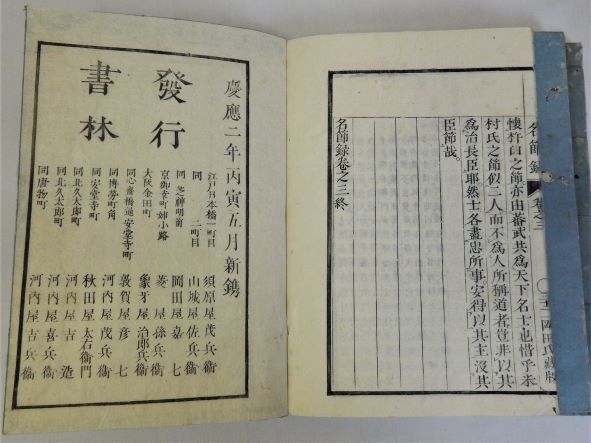 名節錄 卷之三 岡田氏藏版
之節亦由蕃武共爲天下名士也惜乎米
村氏之節似二人而不爲人所稱道者豈非以其
爲治長臣耶然士各盡忠所事安得以其主沒其
臣節哉。
名節錄卷之三終
慶應二年丙寅五月新鐫
發行
書林
江戸日本橋一町目 須原屋茂兵衞
同 二町目 山城屋佐兵衞
同芝神明前 岡田屋嘉七
京御幸町姉小路 菱屋孫兵衞
大阪金田町 象牙屋治郎兵衞
同心齋橋通安堂寺町 敦賀屋彦七
同博勞町角 河内屋茂兵衞
同安堂寺町 秋田屋太右衞門
同北久太郎町 河内屋吉造
同北久太郎町 河内屋喜兵衞
同唐物町 河内屋吉兵衞